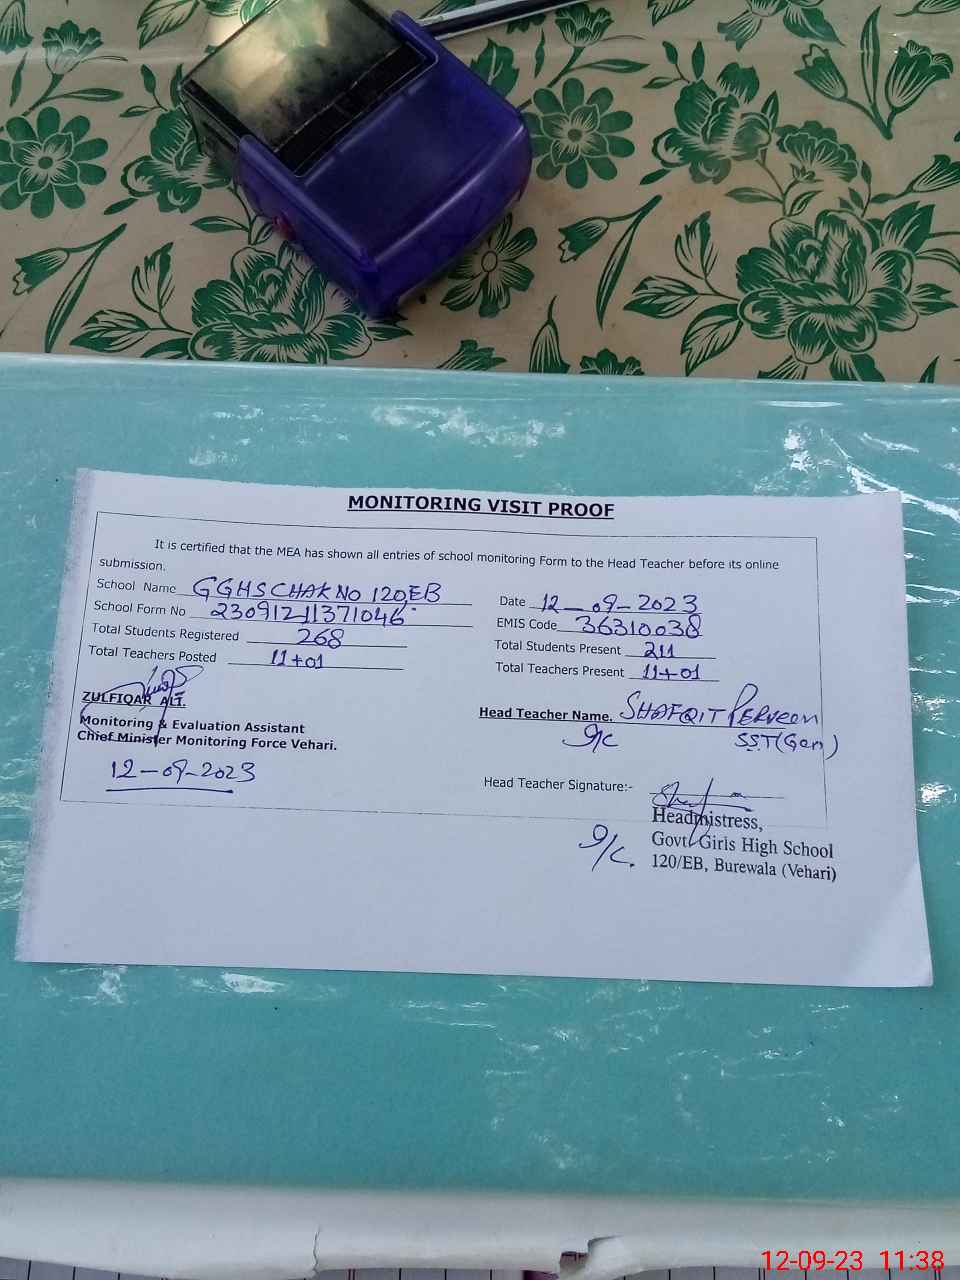 MONITORING VISIT PROOF
It is certified that the MEA has shown all entries of school monitoring Form to the Head Teacher before its online
submission.
School Name GGHS CHAK NO 120EB
Date 12-09-2023
School Form No 23091211371046
EMIS Code 36310038
Total Students Registered 268
Total Students Present 211
Total Teachers Posted 11+01
Total Teachers Present 11+01
ZULFIQAR ALI.
Monitoring & Evaluation Assistant
Chief Minister Monitoring Force Vehari.
12-09-2023
Head Teacher Name. SHAFQIT PERVEEN
I/C SST(Gen)
Head Teacher Signature:-
Headmistress,
Govt. Girls High School
I/C. 120/EB, Burewala (Vehari)
12-09-23 11:38